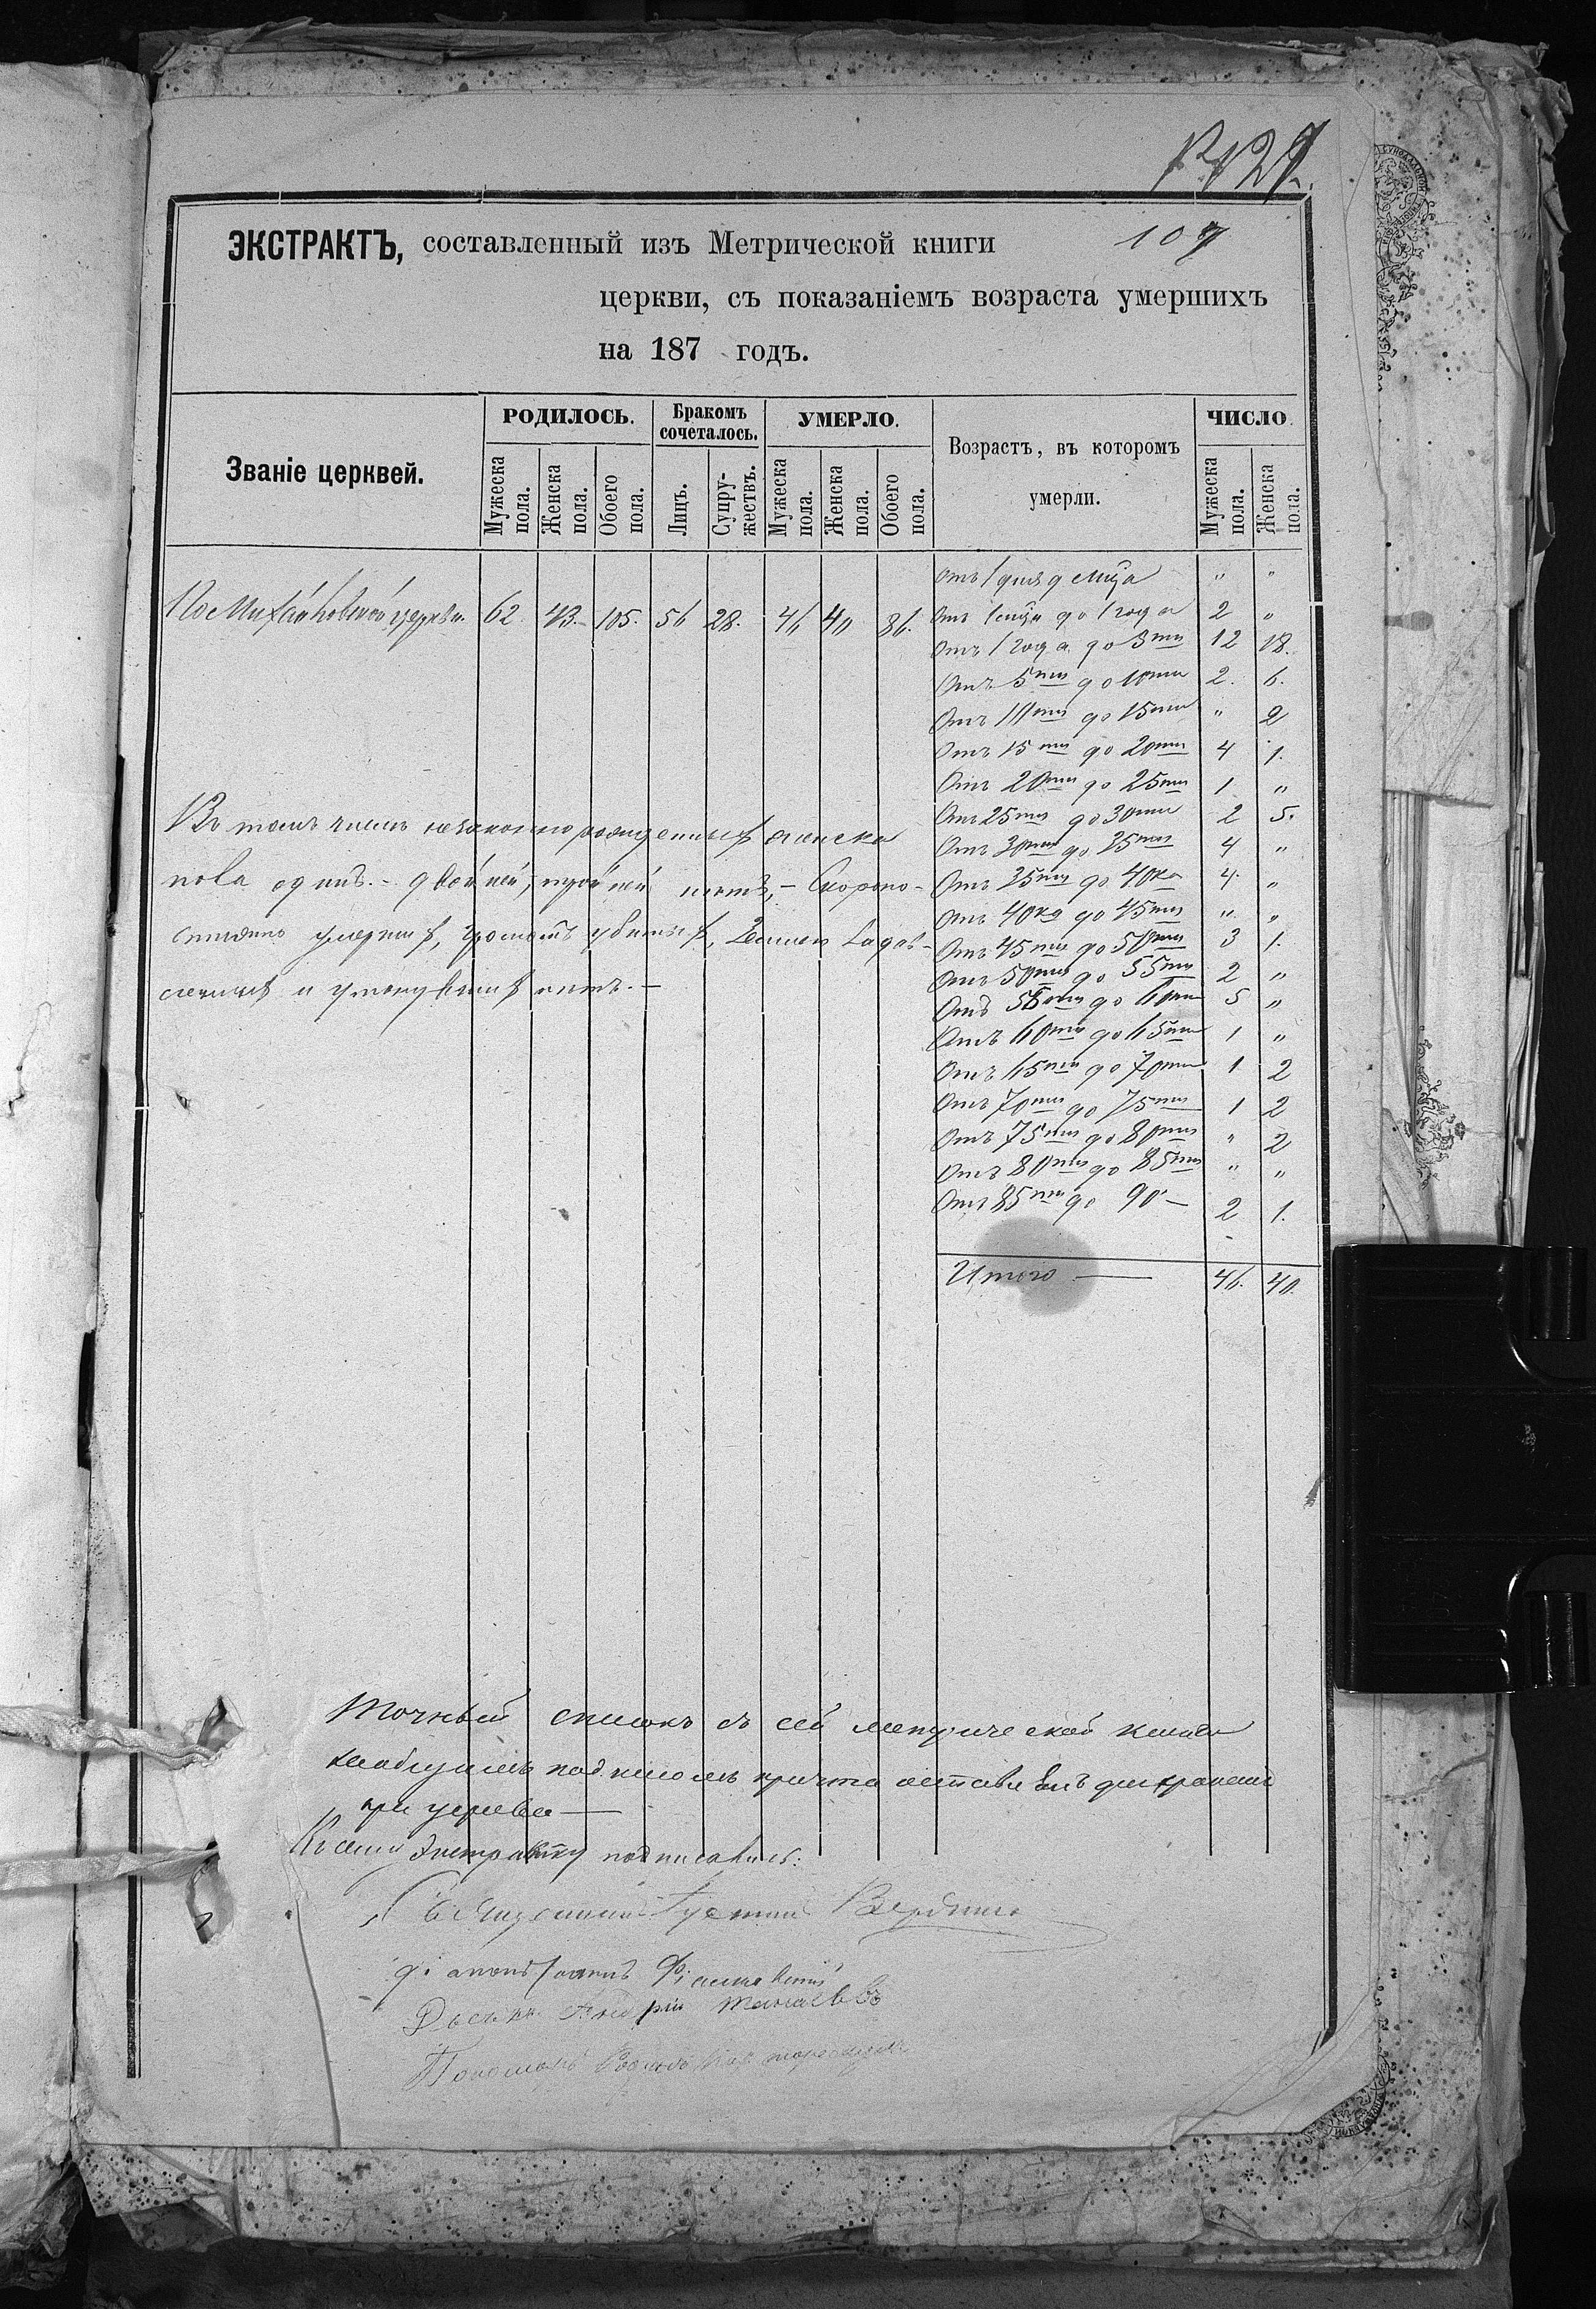 129.
107
ЭКСТРАКТЪ, составленный изъ Метрической книги
церкви, съ показаніемъ возраста умершихъ
на 187 годъ.
Званіе церквей.
РОДИЛОСЬ.
Бракомъ сочеталось.
УМЕРЛО.
Возрастъ, въ которомъ умерли.
ЧИСЛО.
Мужеска пола.
Женска пола.
Обоего пола.
Лицъ.
Супружествъ.
Мужеска пола.
Женска пола.
Обоего пола.
Мужеска пола.
Женска пола.
По церкви. 62 43. 105. 56 28. 46 40 86.
отъ 1 дня д мца " "
Отъ 1 мца до 1 года 2 "
Отъ 1 года до 5ти 12 18.
Отъ 5ти до 10ти 2. 6.
Отъ 10ти до 15ти " 2
Отъ 15ти до 20ти 4 1.
Отъ 20ти до 25ти 1 "
Отъ 25ти до 30ти 2 5.
Отъ 30ти до 35ти 4 "
Отъ 35ти до 40ка 4. "
Отъ 40ка до 45ти " "
Отъ 45ти до 50ти 3 1.
Отъ 50ти до 55ти 2 "
Отъ 55ти до 60ти 5 "
Отъ 60ти до 65ти 1 "
Отъ 65ти до 70ти 1 2
Отъ 70ти до 75ти 1 2
Отъ 75ти до 80ти " 2
Отъ 80ти до 85ти " "
Отъ 85ти до 90 — 2 1.
Итого — 46. 40.
Въ томъ числѣ незаконнорожденныхъ женска
пола одинъ. - двойней, тройней нѣтъ, - Скоропо-
стижно умершихъ, громомъ убитыхъ,
и утонувшихъ нѣтъ. —
Точный списокъ съ сей метрической книги
за общимъ подписомъ причта оставленъ для храненія
при церкви —
Къ сему Экстракту подписались:
Священникъ
діаконъ Іоаннъ
Дьячк. Андрей
Пономарь